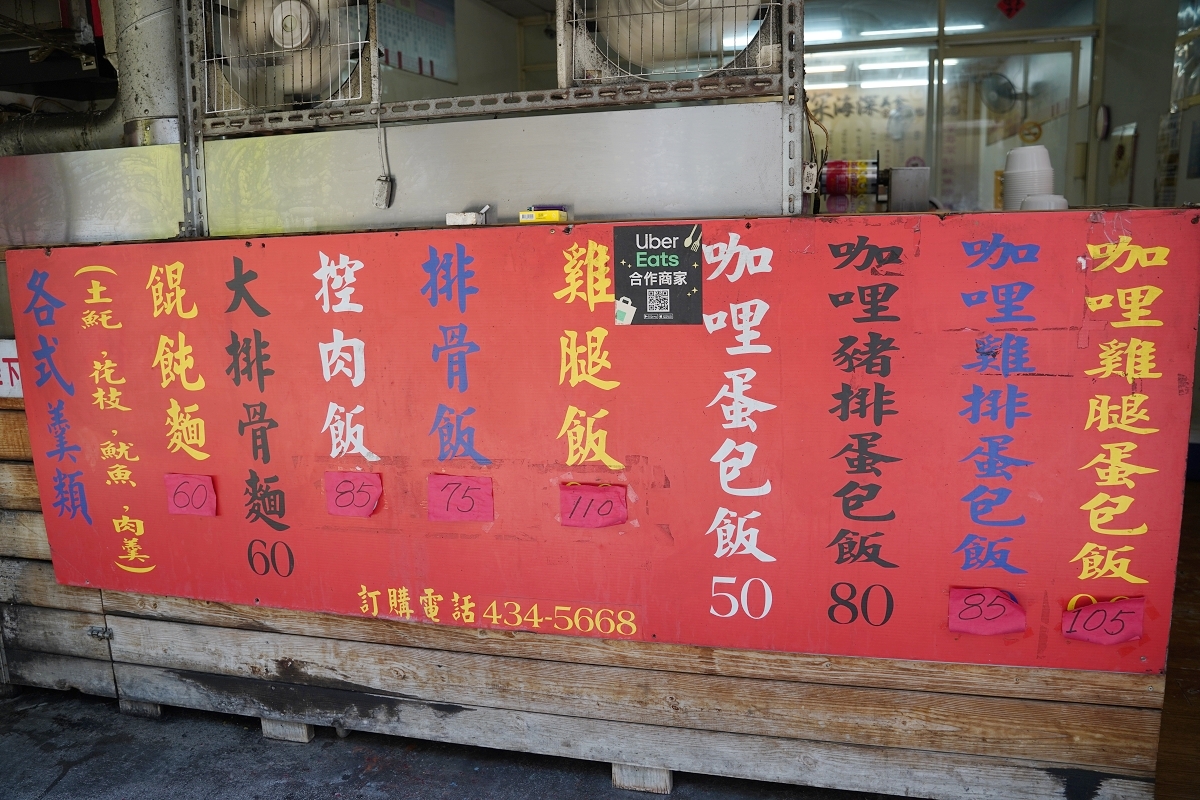 各式羹類
(土魠,花枝,魷魚,肉羹)
餛飩麵
60
大排骨麵
60
控肉飯
85
排骨飯
75
雞腿飯
110
Uber
Eats
合作商家
咖哩蛋包飯
50
咖哩豬排蛋包飯
80
咖哩雞排蛋包飯
85
咖哩雞腿蛋包飯
105
訂購電話434-5668